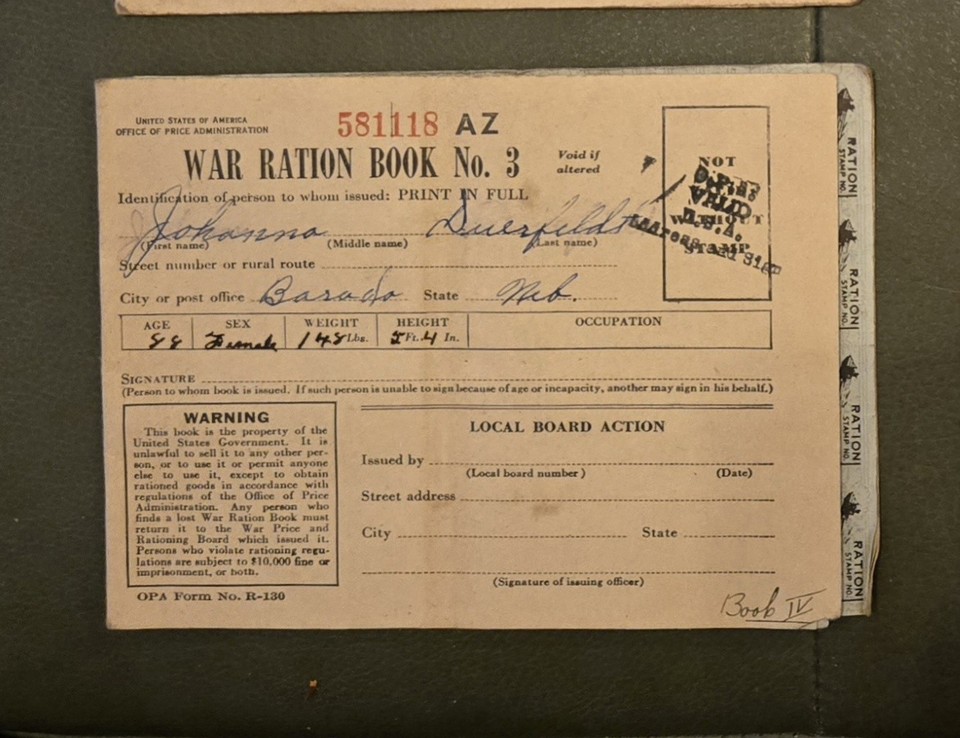 UNITED STATES OF AMERICA
OFFICE OF PRICE ADMINISTRATION
581118 AZ
WAR RATION BOOK No. 3
Void if
altered
NOT
VALID
WITHOUT
STAMP
Identification of person to whom issued: PRINT IN FULL
Johanna Duerfeldt
(First name) (Middle name) (Last name)
Street number or rural route
City or post office Barada State Neb.
AGE SEX WEIGHT HEIGHT OCCUPATION
88 Female 148 Lbs. 5 Ft. 4 In.
SIGNATURE
(Person to whom book is issued. If such person is unable to sign because of age or incapacity, another may sign in his behalf.)
WARNING
This book is the property of the
United States Government. It is
unlawful to sell it to any other per-
son, or to use it or permit anyone
else to use it, except to obtain
rationed goods in accordance with
regulations of the Office of Price
Administration. Any person who
finds a lost War Ration Book must
return it to the War Price and
Rationing Board which issued it.
Persons who violate rationing regu-
lations are subject to $10,000 fine or
imprisonment, or both.
LOCAL BOARD ACTION
Issued by
(Local board number) (Date)
Street address
City State
(Signature of issuing officer)
OPA Form No. R-130
Book IV
RATION
STAMP NO.
RATION
STAMP NO.
RATION
STAMP NO.
RATION
STAMP NO.